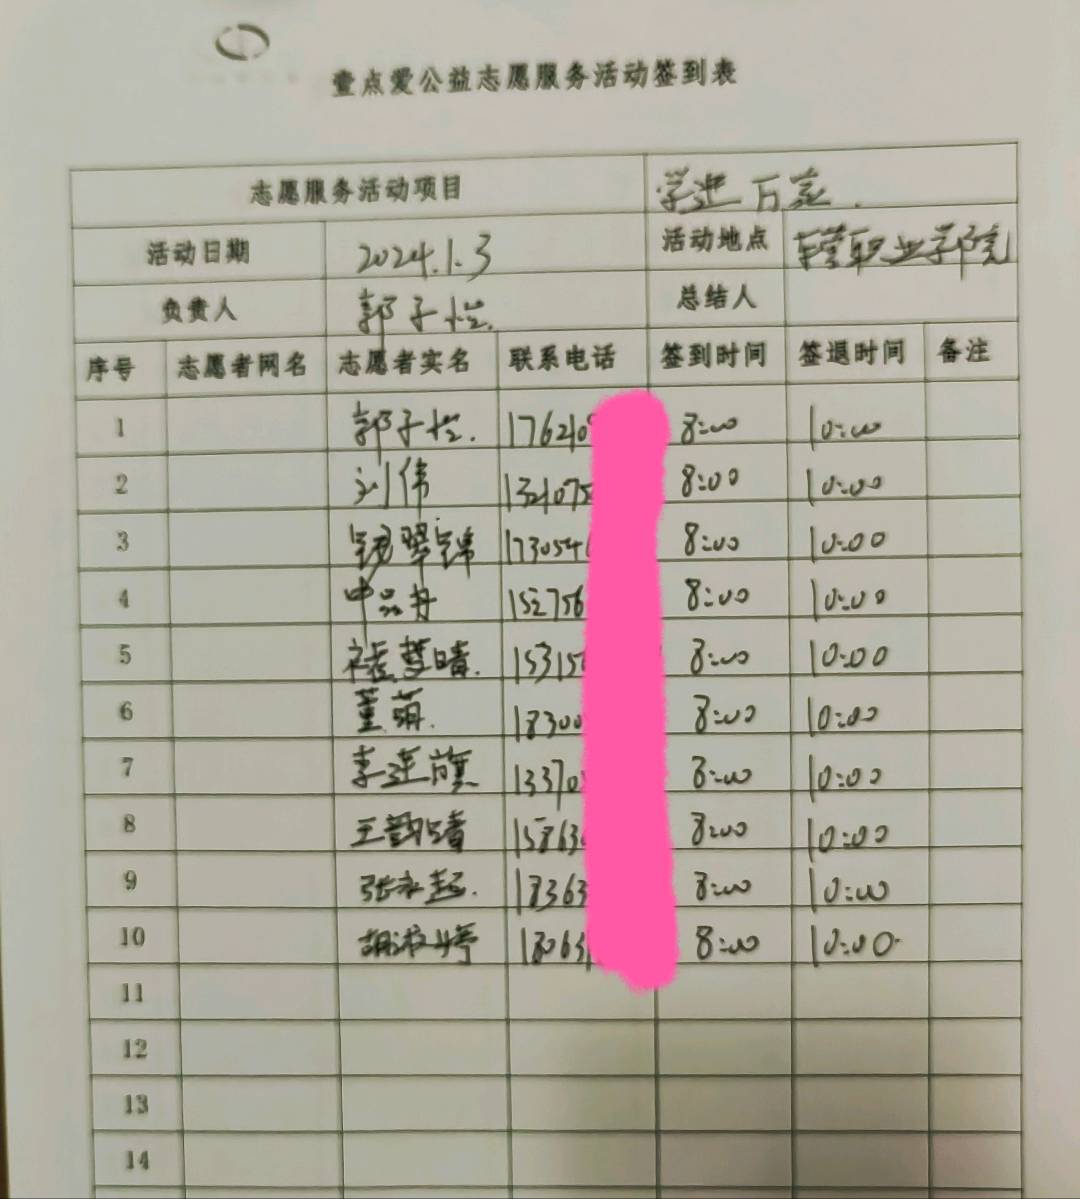 壹点爱公益志愿服务活动签到表
志愿服务活动项目 学进万家.
活动日期 2024.1.3 活动地点 东营职业学院
负责人 郭子怡. 总结人
序号 志愿者网名 志愿者实名 联系电话 签到时间 签退时间 备注
1 郭子怡. 176210 8:00 10:00
2 刘伟 1321075 8:00 10:00
3 翠锦 1730546 8:00 10:00
4 申品丹 152756 8:00 10:00
5 梦晴. 15315 8:00 10:00
6 董萌. 18300 8:00 10:00
7 李连旗 13370 8:00 10:00
8 王韵晴 15863 8:00 10:00
9 张永起. 18363 8:00 10:00
10 胡淑婷 18063 8:00 10:00.
11
12
13
14